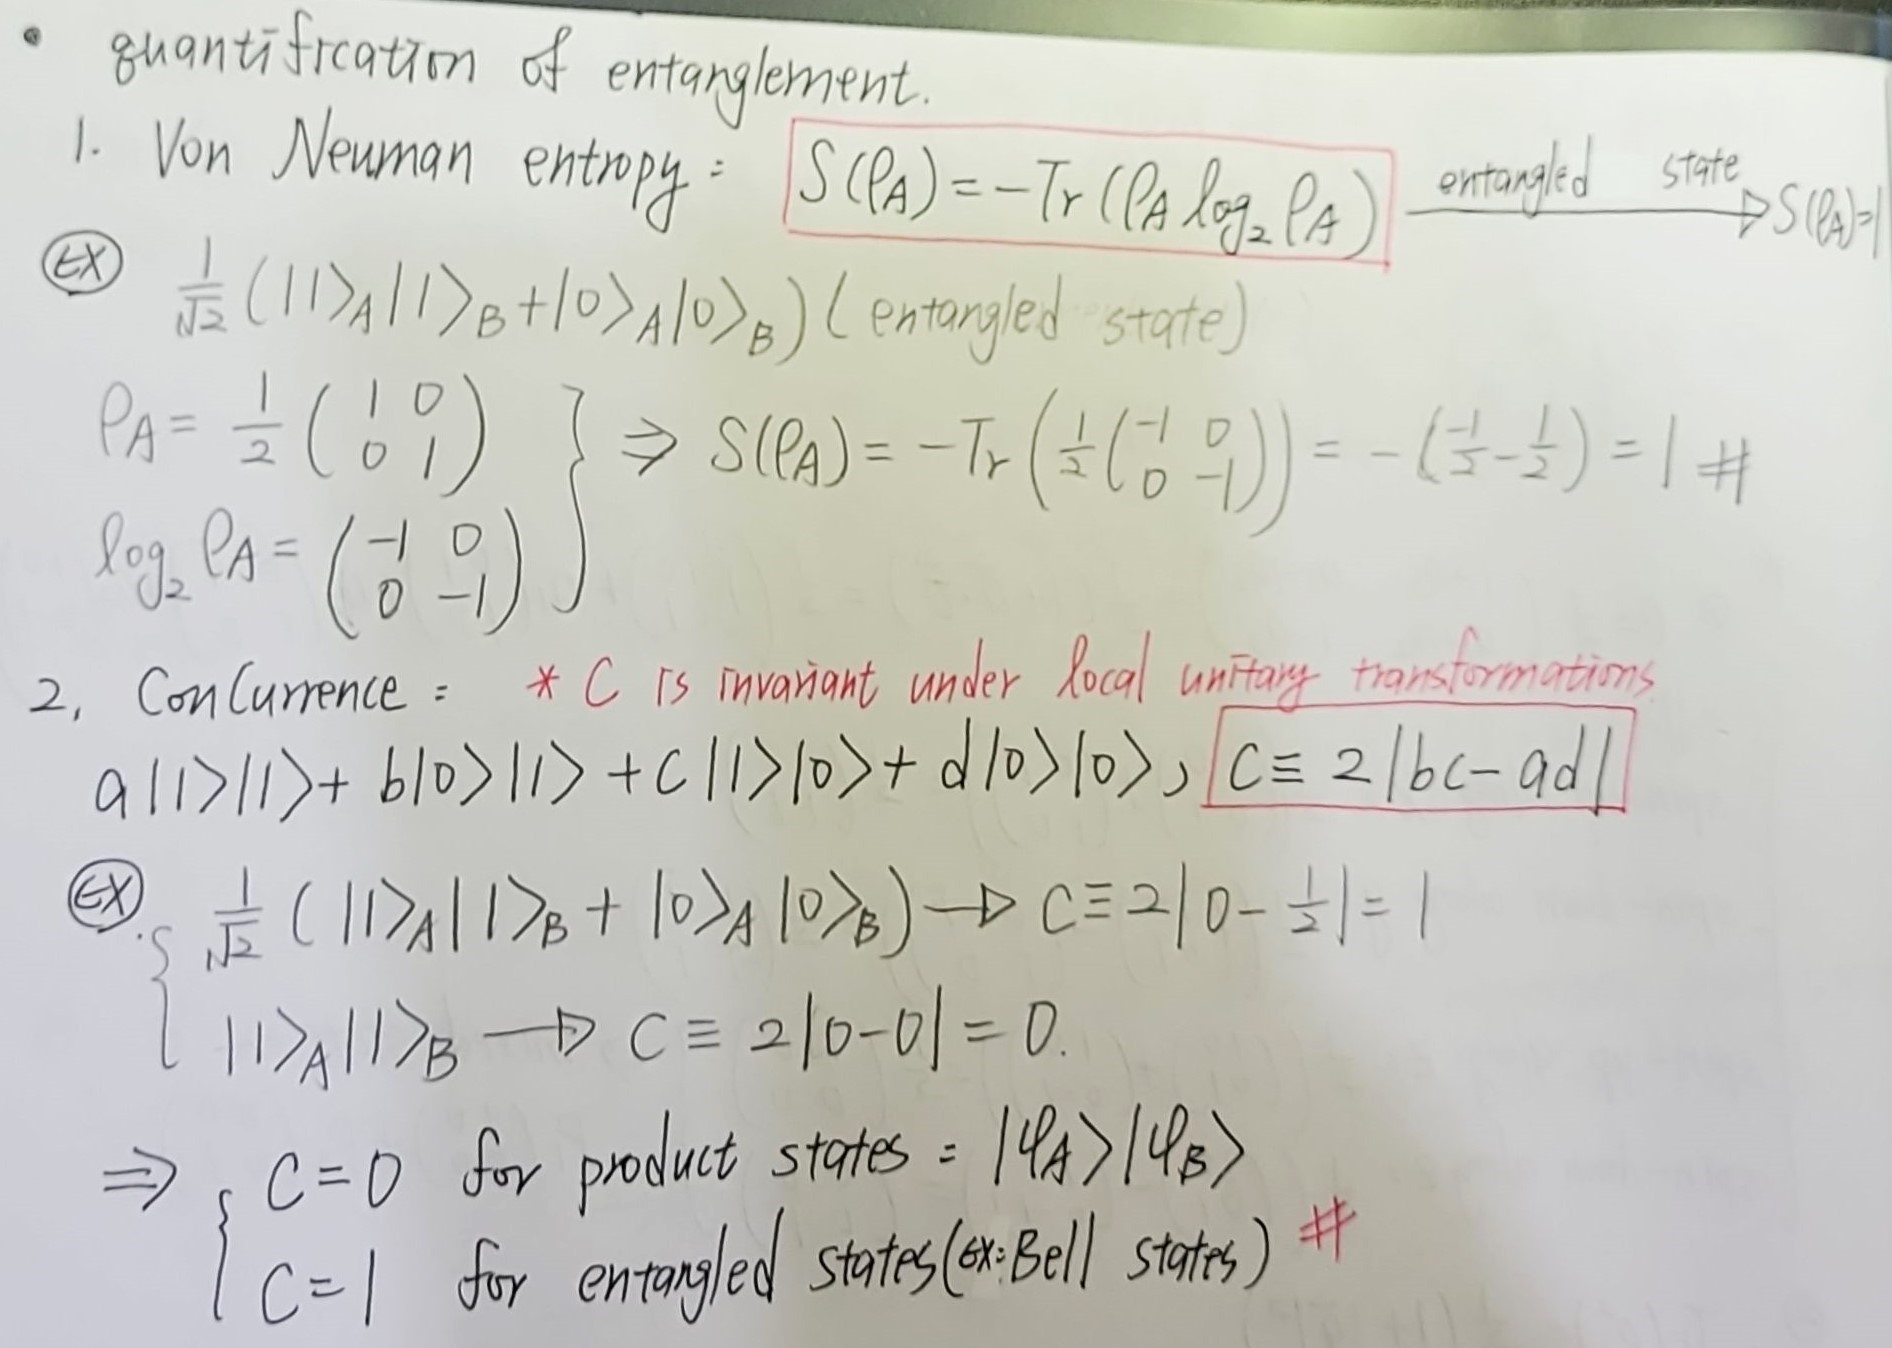 • quantification of entanglement.
1. Von Neuman entropy: S(ρA) = -Tr(ρA log₂ ρA) entangled state → S(ρA)=1
EX 1/√2 (|1>A|1>B + |0>A|0>B) (entangled state)
ρA = 1/2 (1 0 0 1) } ⇒ S(ρA) = -Tr(1/2 (-1 0 0 -1)) = -(-1/2 - 1/2) = 1 #
log₂ ρA = (-1 0 0 -1)
2, Concurrence: * C is invariant under local unitary transformations.
a|1>|1> + b|0>|1> + c|1>|0> + d|0>|0>, C ≡ 2|bc-ad|
EX. { 1/√2 (|1>A|1>B + |0>A|0>B) → C ≡ 2|0 - 1/2| = 1
|1>A|1>B → C ≡ 2|0-0| = 0.
⇒ { C=0 for product states: |φA>|φB>
C=1 for entangled states (ex: Bell states) #